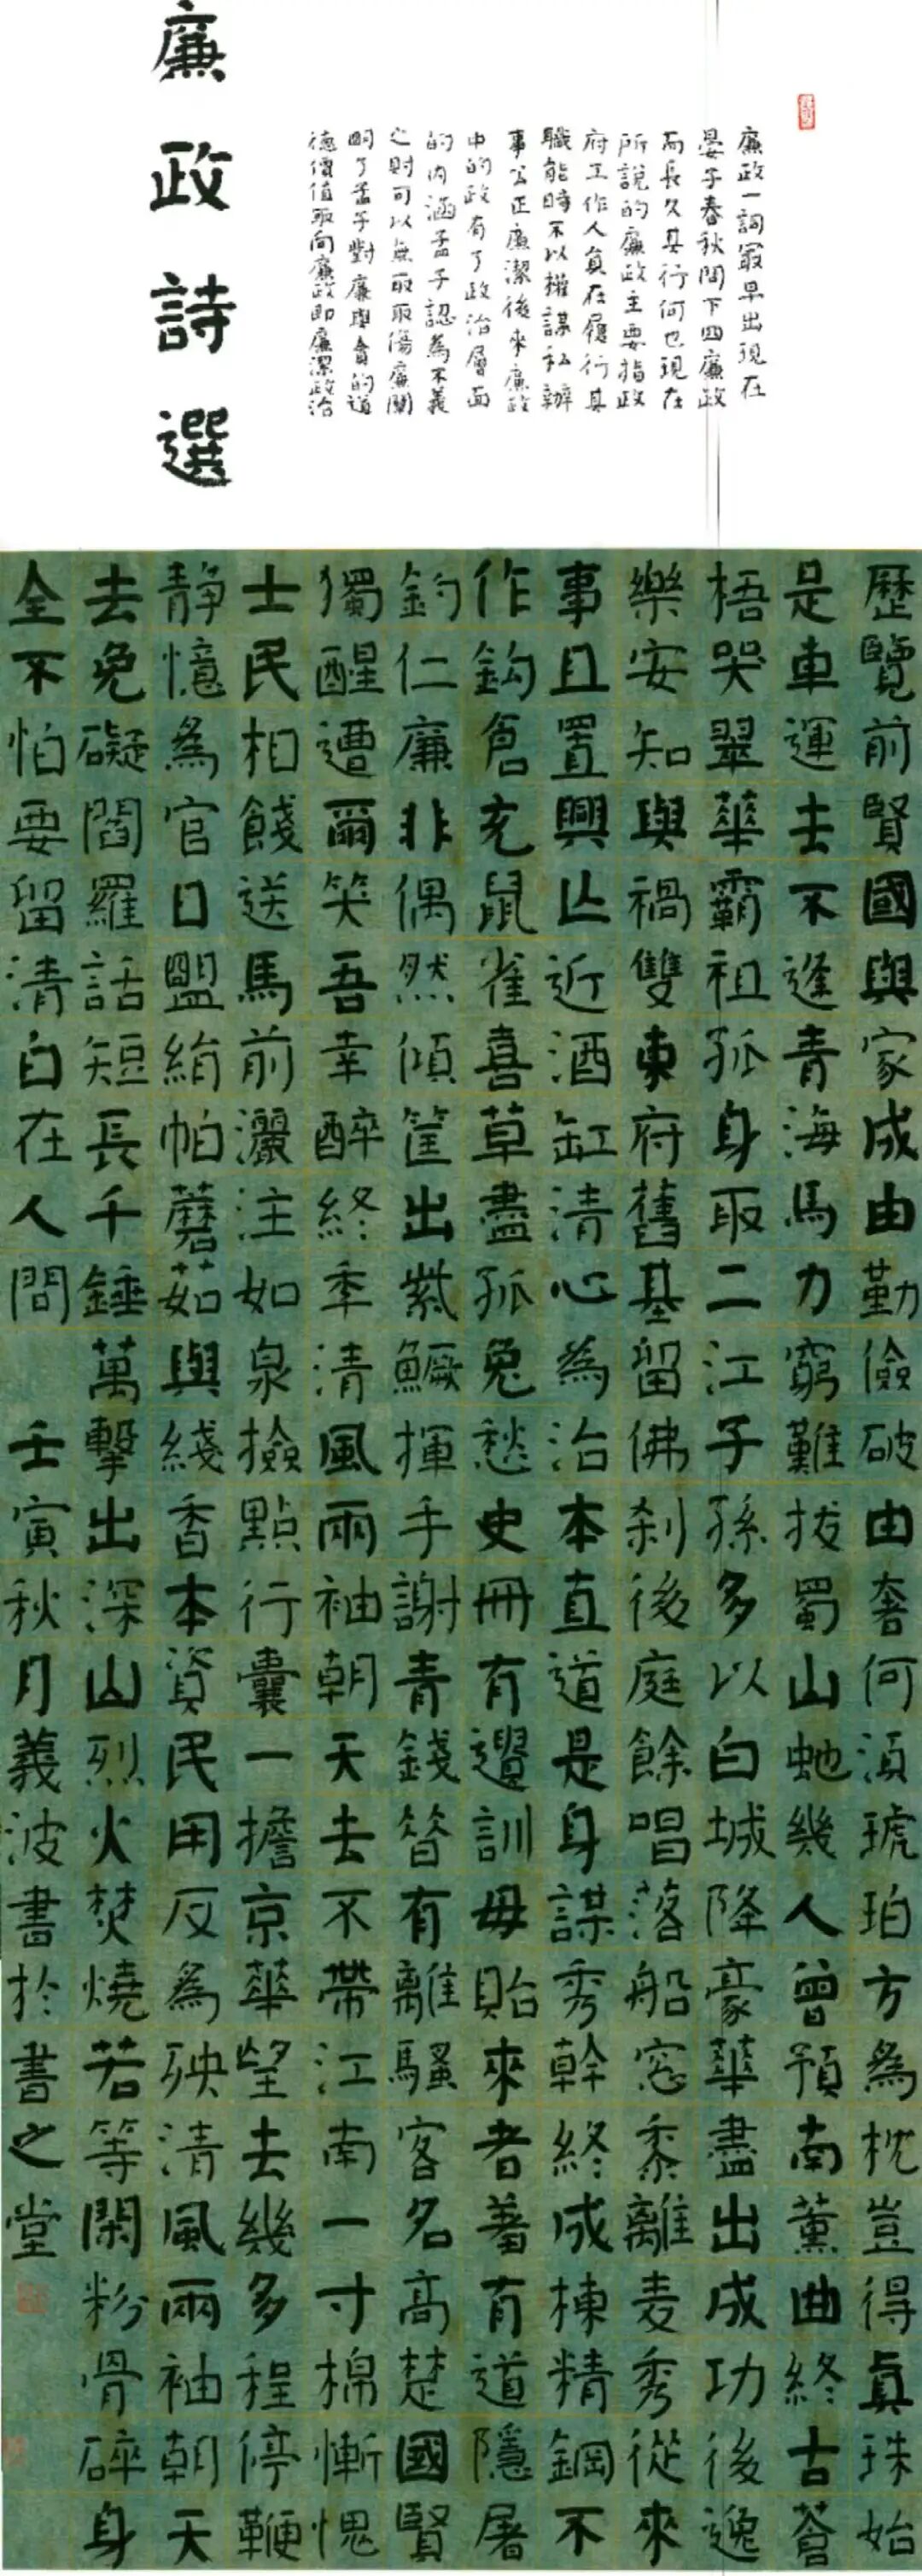 廉政詩選
廉政一詞最早出現在
晏子春秋問下四廉政
而長久其行何也現在
所說的廉政主要指政
府工作人員在履行其
職能時不以權謀私辦
事公正廉潔後來廉政
中的政有了政治層面
的內涵孟子認為不義
之財可以無取取傷廉闡
明了孟子對廉與貪的道
德價值取向廉政即廉潔政治
歷覽前賢國與家成由勤儉破由奢何須琥珀方為枕豈得真珠始
是車運去不逢青海馬力窮難拔蜀山虵幾人曾預南薰曲終古蒼
梧哭翠華霸祖孤身取二江子孫多以白城降豪華盡出成功後逸
樂安知與禍雙東府舊基留佛刹後庭餘唱落船窓黍離麦秀從來
事且置興亡近酒缸清心為治本直道是身謀秀幹終成棟精鋼不
作鈎倉充鼠雀喜草盡狐兔愁史冊有遺訓毋貽來者羞有道隱屠
釣仁廉非偶然傾筐出紫鱖揮手謝青錢昝有離騷客名高楚國賢
獨醒遭爾笑吾幸醉終年清風兩袖朝天去不帶江南一寸棉慚愧
士民相餞送馬前灑注如泉撿點行囊一擔京華望去幾多程停鞭
靜憶為官日盟絹帕蘑菇與綫香本資民用反為殃清風兩袖朝天
去免礙閻羅話短長千錘萬擊出深山烈火焚燒若等閑粉骨碎身
全不怕要留清白在人間 壬寅秋月義波書於書之堂